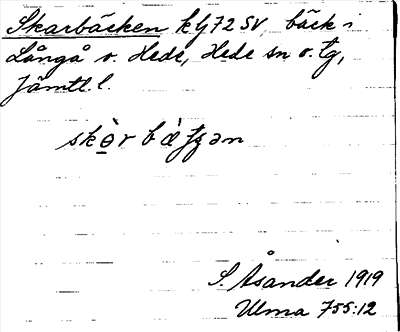 Skarbäcken kg 72 SV, bäck i
Långå v. Hede, Hede sn o. tg,
Jämtl. l.
skɵ̀r bæ̀ tʂ ən
S. Åsander 1919
Ulma 755:12